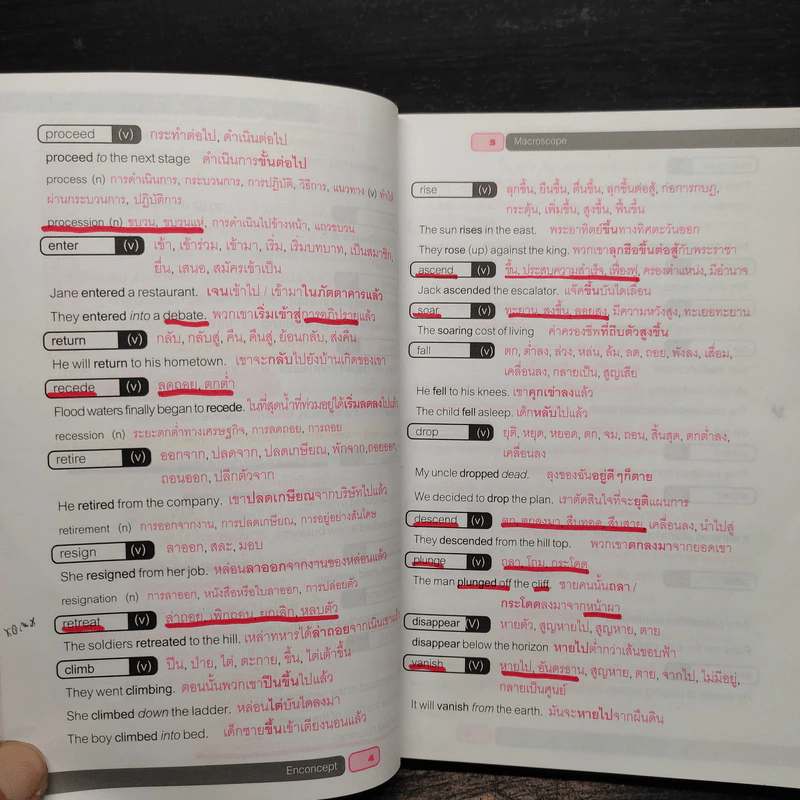 proceed (v) กระทำต่อไป, ดำเนินต่อไป
proceed to the next stage ดำเนินการขั้นต่อไป
process (n) การดำเนินการ, กระบวนการ, การปฏิบัติ, วิธีการ, แนวทาง (v) ทำให้
ผ่านกระบวนการ, ปฏิบัติการ
procession (n) ขบวน, ขบวนแห่, การดำเนินไปข้างหน้า, แถวขบวน
enter (v) เข้า, เข้าร่วม, เข้ามา, เริ่ม, เริ่มบทบาท, เป็นสมาชิก,
ยื่น, เสนอ, สมัครเข้าเป็น
Jane entered a restaurant. เจนเข้าไป / เข้ามาในภัตตาคารแล้ว
They entered into a debate. พวกเขาเริ่มเข้าสู่การอภิปรายแล้ว
return (v) กลับ, กลับสู่, คืน, คืนสู่, ย้อนกลับ, ส่งคืน
He will return to his hometown. เขาจะกลับไปยังบ้านเกิดของเขา
recede (v) ลดถอย, ตกต่ำ
Flood waters finally began to recede. ในที่สุดน้ำที่ท่วมอยู่ได้เริ่มลดลงไปแล้ว
recession (n) ระยะตกต่ำทางเศรษฐกิจ, การลดถอย, การถอย
retire (v) ออกจาก, ปลดจาก, ปลดเกษียณ, พักจาก, ถอยออก,
ถอนออก, ปลีกตัวจาก
He retired from the company. เขาปลดเกษียณจากบริษัทไปแล้ว
retirement (n) การออกจากงาน, การปลดเกษียณ, การอยู่อย่างสันโดษ
resign (v) ลาออก, สละ, มอบ
She resigned from her job. หล่อนลาออกจากงานของหล่อนแล้ว
resignation (n) การลาออก, หนังสือหรือใบลาออก, การปล่อยตัว
retreat (v) ล่าถอย, เพิกถอน, ยกเลิก, หลบตัว
The soldiers retreated to the hill. เหล่าทหารได้ล่าถอยจากเนินเขาแล้ว
climb (v) ปีน, ป่าย, ไต่, ตะกาย, ขึ้น, ไต่เต้าขึ้น
They went climbing. ตอนนั้นพวกเขาปีนขึ้นไปแล้ว
She climbed down the ladder. หล่อนไต่บันไดลงมา
The boy climbed into bed. เด็กชายขึ้นเข้าเตียงนอนแล้ว
Enconcept 4
5 Macroscope
rise (v) ลุกขึ้น, ยืนขึ้น, ตื่นขึ้น, ลุกขึ้นต่อสู้, ก่อการกบฏ,
กระตุ้น, เพิ่มขึ้น, สูงขึ้น, ฟื้นขึ้น
The sun rises in the east. พระอาทิตย์ขึ้นทางทิศตะวันออก
They rose (up) against the king. พวกเขาลุกฮือขึ้นต่อสู้กับพระราชา
ascend (v) ขึ้น, ประสบความสำเร็จ, เฟื่องฟู, ครองตำแหน่ง, มีอำนาจ
Jack ascended the escalator. แจ๊คขึ้นบันไดเลื่อน
soar (v) ทะยาน, สูงขึ้น, ลอยสูง, มีความหวังสูง, ทะเยอทะยาน
The soaring cost of living ค่าครองชีพที่ถีบตัวสูงขึ้น
fall (v) ตก, ต่ำลง, ล่วง, หล่น, ล้ม, ลด, ถอย, พังลง, เสื่อม,
เคลื่อนลง, กลายเป็น, สูญเสีย
He fell to his knees. เขาคุกเข่าลงแล้ว
The child fell asleep. เด็กหลับไปแล้ว
drop (v) ยุติ, หยุด, หยอด, ตก, จม, ถอน, สิ้นสุด, ตกต่ำลง,
เคลื่อนลง
My uncle dropped dead. ลุงของฉันอยู่ดีๆก็ตาย
We decided to drop the plan. เราตัดสินใจที่จะยุติแผนการ
descend (v) ตก, ตกลงมา, สืบทอด, สืบสาย, เคลื่อนลง, นำไปสู่
They descended from the hill top. พวกเขาตกลงมาจากยอดเขา
plunge (v) ถลา, โถม, กระโดด
The man plunged off the cliff. ชายคนนั้นถลา /
กระโดดลงมาจากหน้าผา
disappear (V) หายตัว, สูญหายไป, สูญหาย, ตาย
disappear below the horizon หายไปต่ำกว่าเส้นขอบฟ้า
vanish (V) หายไป, อันตรธาน, สูญหาย, ตาย, จากไป, ไม่มีอยู่,
กลายเป็นศูนย์
It will vanish from the earth. มันจะหายไปจากผืนดิน